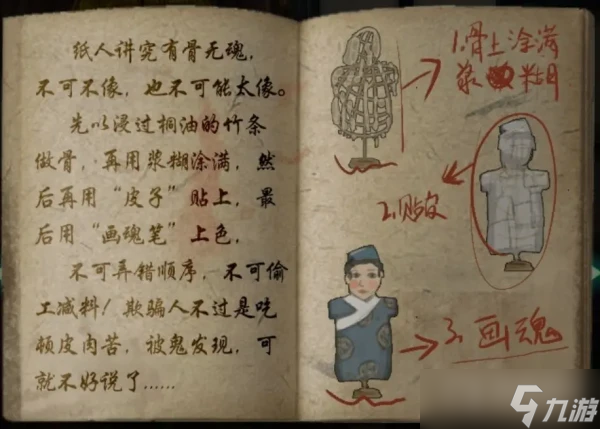 纸人讲究有骨无魂,
不可不像, 也不可能太像。
先以浸过桐油的竹条
做骨, 再用浆糊涂满, 然
后再用“皮子”贴上, 最
后用“画魂笔”上色,
不可弄错顺序, 不可偷
工减料! 欺骗人不过是吃
顿皮肉苦, 被鬼发现, 可
就不好说了……
1.骨上涂满
浆糊
2.贴皮
3.画魂
九游